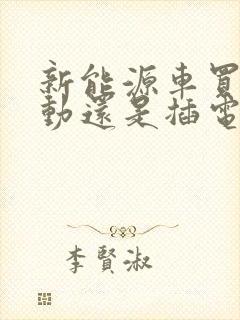 新能源車買
動還是插電
李賢淑